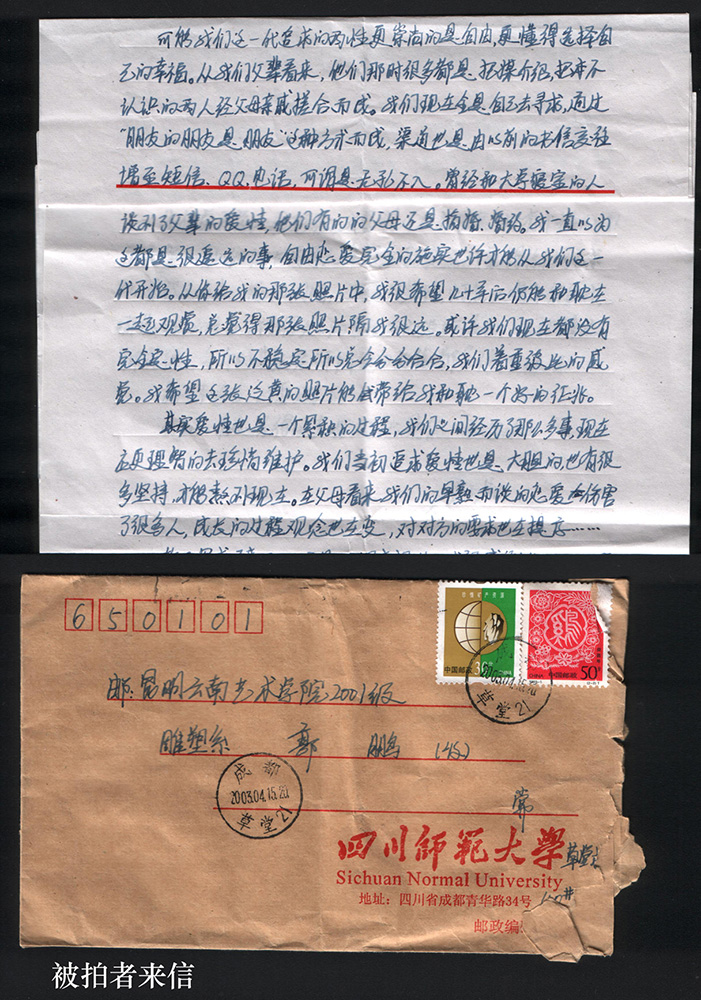 可能我们这一代追求的两性更崇尚的是自由,更懂得选择自
己的幸福。从我们父辈看来,他们那时很多都是媒介绍,把本不
认识的两人经父母亲戚搓合而成。我们现在全是自己去寻求,通过
“朋友的朋友是朋友”这种方式而成,渠道也是由以前的书信变轻
增至短信、QQ、电话,可谓是无孔不入。曾经和大学寝室的人
谈到了父辈的爱情,他们有的的父母还是指婚、婚约。我一直以为
这都是很遥远的事,自由恋爱完全的施实也许才能从我们这一
代开始。从你给我的那张照片中,我很希望几十年后仍能和耿在
一起观赏,总觉得那张照片隔我很远。或许我们现在都没有
完全定性,所以不稳定所以总会分分合合,我们着重彼此的感
觉。我希望这张泛黄的照片能带给我和耿一个好的征兆。
其实爱情也是一个累积的过程,我们之间经历了那么多事,现在
应更理智的去珍惜维护。我们当初追求爱情也是大胆的也有很
多坚持,才能熬到现在。在父母看来我们的早熟和谈的恋爱会伤害
了很多人,成长的过程观念也在变,对对方的要求也在提高……
650101
中国邮政
36
中国邮政
50分
鸡
邮:昆明云南艺术学院2001级
雕塑系 郭 鹏 (收)
成都
2003.04.15.20
草堂 21
2003.04.15.20
草堂 21
四川師範大學
Sichuan Normal University
地址:四川省成都青华路34号
邮政编
被拍者来信